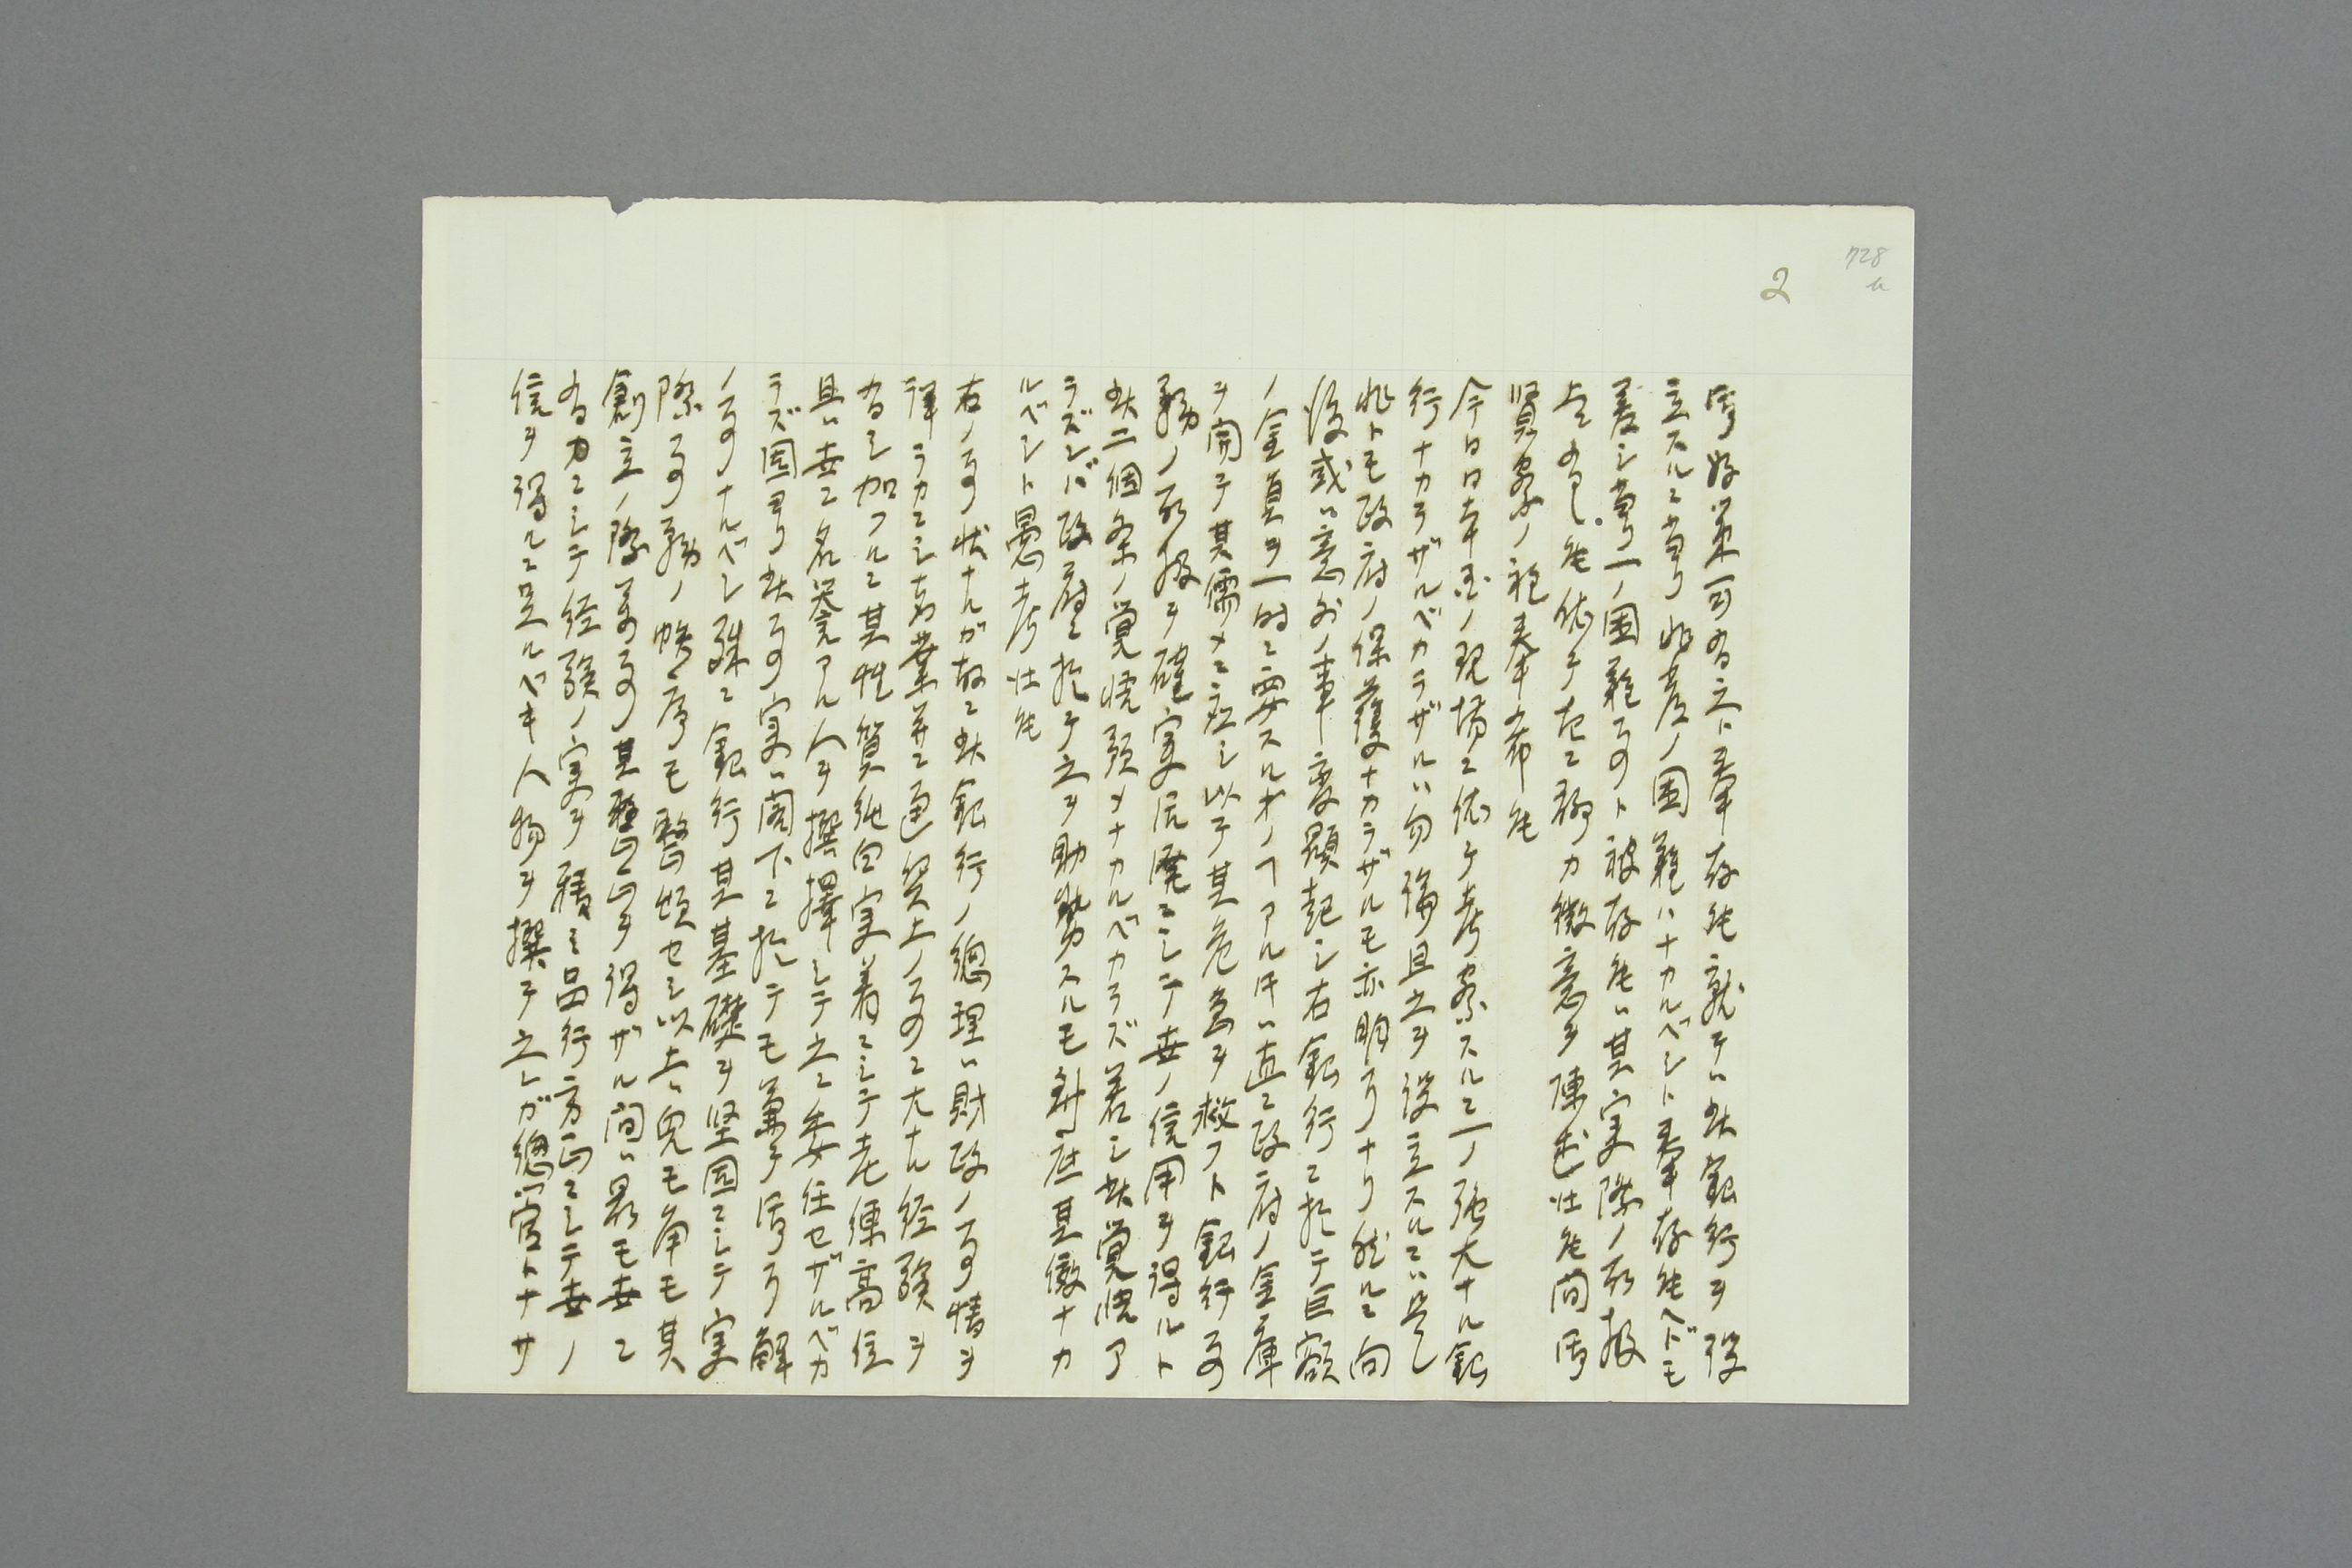 728
2
御好策可有之ト奉存候就テハ此銀行ヲ設
立スルニ当リ非常ノ困難ハナカルベシト奉存候ヘドモ
差シ当リ一ノ困難事ト被存候ハ其実際ノ取扱
上ニ有之候依テ左ニ聊カ微意ヲ陳述仕候間御
賢察ノ程奉希候
今日日本国ノ現場ニ依テ考察スルニ一ノ強大ナル銀
行ナカラザルベカラザルハ勿論且之ヲ設立スルニハ是
非トモ政府ノ保護ナカラザルモ亦明了ナリ然ルニ向
後或ハ意外ノ事変顕起シ右銀行ニ於テ巨額
ノ金員ヲ一時ニ要スルオノヿアルトキハ直ニ政府ノ金庫
ヲ開テ其需メニ応シ以テ其危急ヲ救フト銀行事
務ノ取扱ヲ確実広廉ニシテ世ノ信用ヲ得ルト
此二個条ノ覚悟預メナカルベカラズ若シ此覚悟ア
ラズンバ政府ニ於テ之ヲ助勢スルモ到底其徴ナカ
ルベシト愚考仕候
右ノ事状ナルガ故ニ此銀行ノ總理ハ財政ノ事情ヲ
諢ラカニシ商業并ニ通貿上ノ事ニ大ナル経験ヲ
有シ加フルニ其性質純白実着ニシテ老練高位
且ハ世ニ名誉アル人ヲ撰擇シテ之ニ委任セザルベカ
ラズ固ヨリ此事ノ実ハ閣下ニ於テモ兼テ御了解
ノ事ナルベシ殊ニ銀行其基礎ヲ堅固ニシテ実
際事務ノ秩序モ整頓セシ以上ハ兎モ角モ其
創立ノ際萬事其整正ヲ得ザル間ハ最モ世ニ
有力ニシテ経験ノ実ヲ積ミ品行方正ニシテ世ノ
信ヲ得ルニ足ルベキ人物ヲ撰テ之レガ總官トナサ